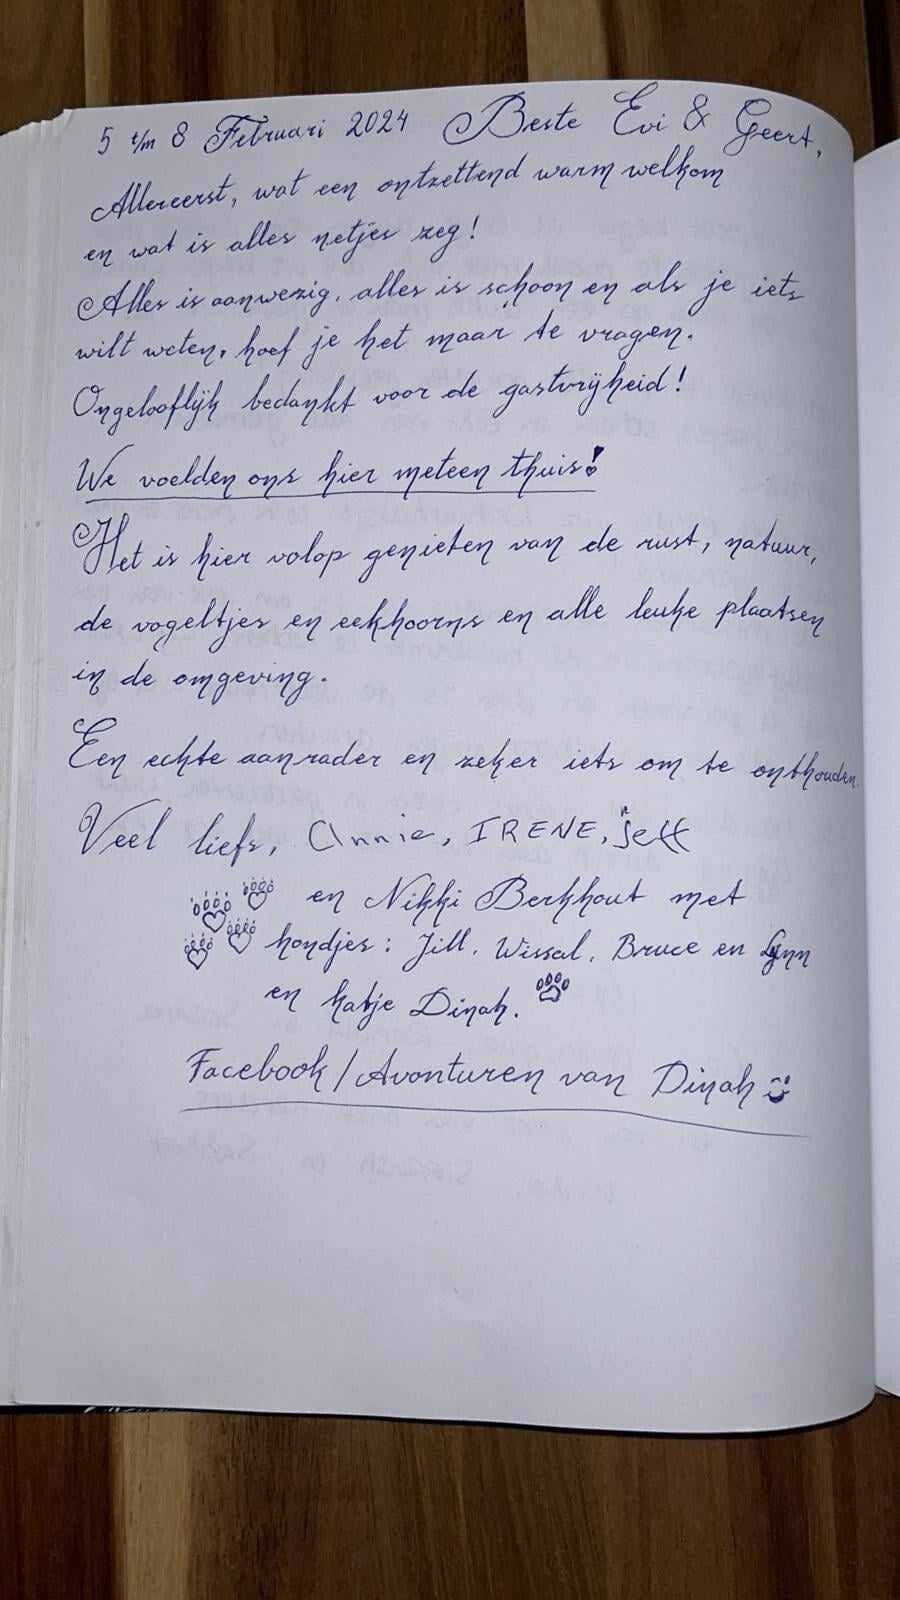 5 t/m 8 Februari 2024 Beste Evi & Geert,
Allereerst, wat een ontzettend warm welkom
en wat is alles netjes zeg!
Alles is aanwezig, alles is schoon en als je iets
wilt weten, hoef je het maar te vragen.
Ongelooflijk bedankt voor de gastvrijheid!
We voelden ons hier meteen thuis!
Het is hier volop genieten van de rust, natuur,
de vogeltjes en eekhoorns en alle leuke plaatsen
in de omgeving.
Een echte aanrader en zeker iets om te onthouden.
Veel liefs, Annie, IRENE, Jeff
en Nikki Berkhout met
hondjes: Jill, Wissal, Bruce en Lynn
en katje Dinah.
Facebook/Avonturen van Dinah